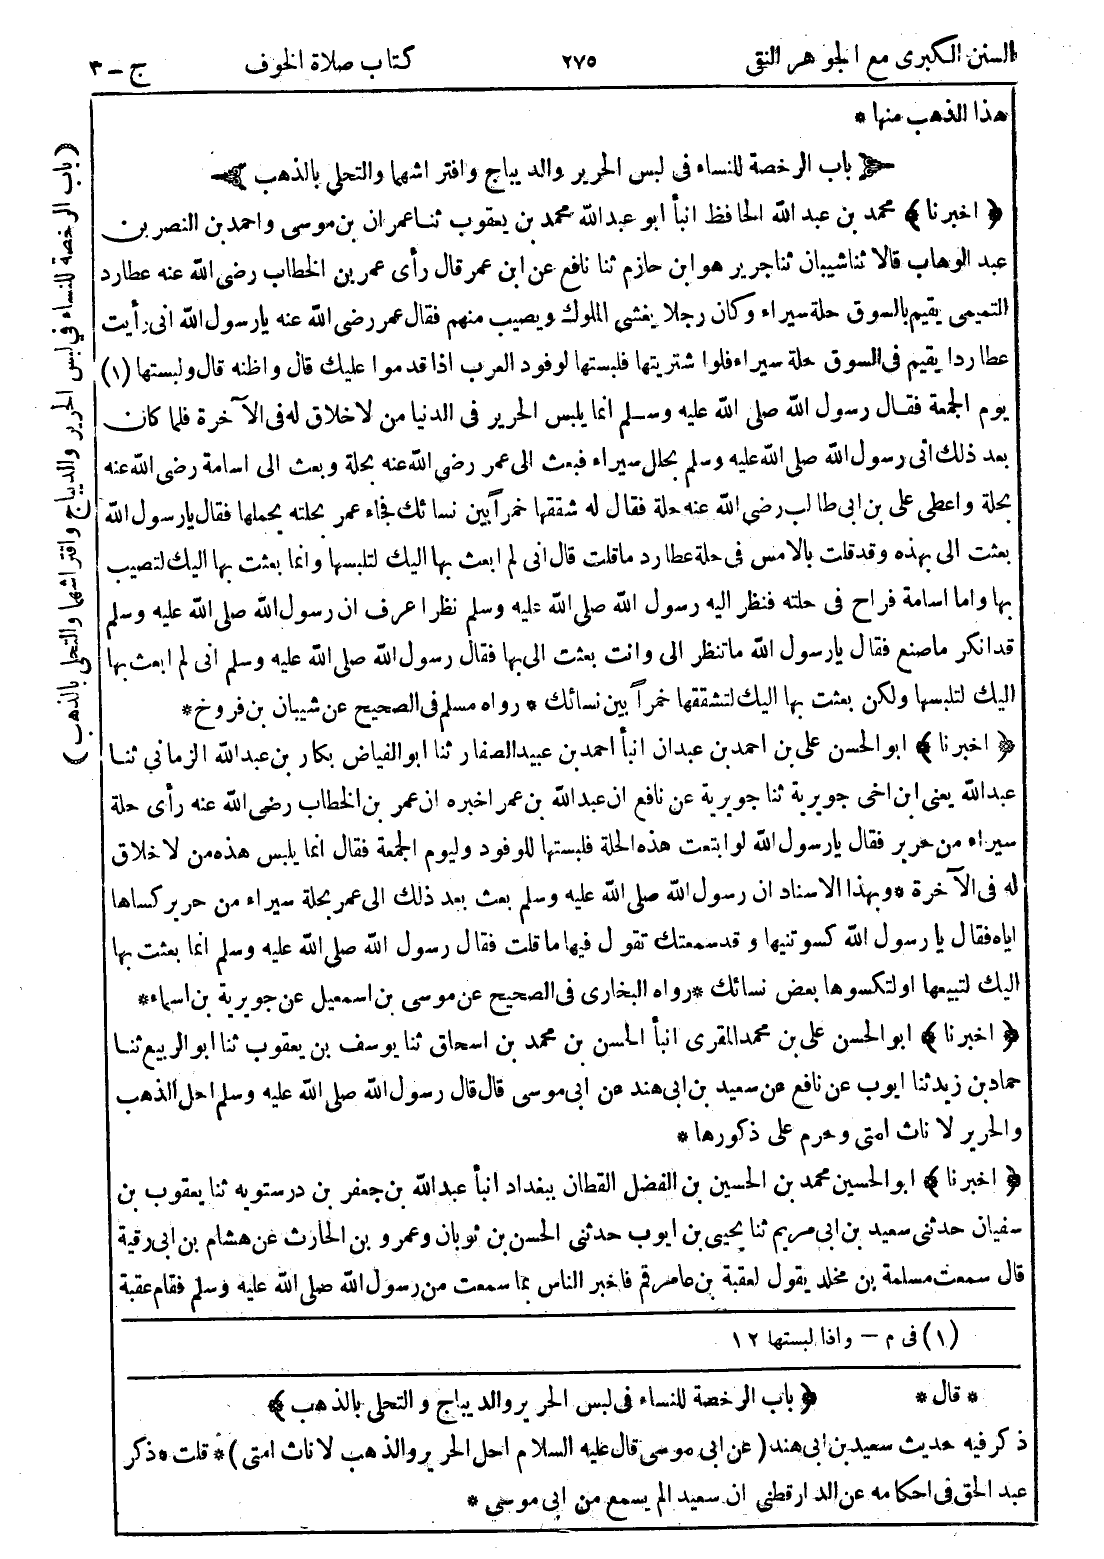 السنن الكبرى مع الجوهر النقى ٢٧٥ كتاب صلاة الخوف ج - ٣
هذا الذهب منها *
باب الرخصة للنساء فى لبس الحرير والديباج وافتراشهما والتحلى بالذهب
﴿ اخبرنا ﴾ محمد بن عبد الله الحافظ انبأ ابو عبدالله محمد بن يعقوب ثنا عمران بن موسى واحمد بن النصر بن
عبد الوهاب قالا ثنا شيبان ثنا جرير هو ابن حازم ثنا نافع عن ابن عمر قال رأى عمر بن الخطاب رضى الله عنه عطارد
التميمى يقيم بالسوق حلة سيراء وكان رجلا يغشى الملوك ويصيب منهم فقال عمر رضى الله عنه يارسول الله انى رأيت
عطاردا يقيم فى السوق حلة سيراء فلوا شتريتها فلبستها لوفود العرب اذا قدموا عليك قال واظنه قال ولبستها (١)
يوم الجمعة فقال رسول الله صلى الله عليه وسلم انما يلبس الحرير فى الدنيا من لاخلاق له فى الآخرة فلما كان
بعد ذلك اتى رسول الله صلى الله عليه وسلم بحلل سيراء فبعث الى عمر رضي الله عنه بحلة وبعث الى اسامة رضى الله عنه
بحلة واعطى على بن ابى طالب رضى الله عنه حلة فقال له شققها خمرآ بين نسائك فجاء عمر بحلته يحملها فقال يارسول الله
بعثت الى بهذه وقدقلت بالامس فى حلة عطارد ماقلت قال انى لم ابعث بها اليك لتلبسها وانما بعثت بها اليك لتصيب
بها واما اسامة فراح فى حلته فنظر اليه رسول الله صلى الله عليه وسلم نظرا عرف ان رسول الله صلى الله عليه وسلم
قدانكر ماصنع فقال يارسول الله ماتنظر الى وانت بعثت الى بها فقال رسول الله صلى الله عليه وسلم انى لم ابعث بها
اليك لتلبسها ولكن بعثت بها اليك لتشققها خمرآ بين نسائك * رواه مسلم فى الصحيح عن شيبان بن فروخ *
﴿ اخبرنا ﴾ ابو الحسن على بن احمد بن عبدان انبأ احمد بن عبيد الصفار ثنا ابو الفياض بكار بن عبدالله الزماني ثنا
عبدالله يعنى ابن اخى جويرية ثنا جويرية عن نافع ان عبدالله بن عمر اخبره ان عمر بن الخطاب رضى الله عنه رأى حلة
سيراء من حرير فقال يارسول الله لو ابتعت هذه الحلة فلبستها للوفود وليوم الجمعة فقال انما يلبس هذه من لاخلاق
له فى الآخرة * وبهذا الاسناد ان رسول الله صلى الله عليه وسلم بعث بعد ذلك الى عمر بحلة سيراء من حرير كساها
اياه فقال يا رسول الله كسوتنيها و قدسمعتك تقول فيها ما قلت فقال رسول الله صلى الله عليه وسلم انما بعثت بها
اليك لتبيعها اولتكسوها بعض نسائك * رواه البخارى فى الصحيح عن موسى بن اسمعيل عن جويرية بن اسماء *
﴿ اخبرنا ﴾ ابو الحسن على بن محمد المقرى انبأ الحسن بن محمد بن اسحاق ثنا يوسف بن يعقوب ثنا ابو الربيع ثنا
حماد بن زيد ثنا ايوب عن نافع عن سعيد بن ابى هند عن ابى موسى قال قال رسول الله صلى الله عليه وسلم احل الذهب
والحرير لا ناث امتى وحرم على ذكورها *
﴿ اخبرنا ﴾ ابو الحسين محمد بن الحسين بن الفضل القطان ببغداد انبأ عبدالله بن جعفر بن درستويه ثنا يعقوب بن
سفيان حدثنى سعيد بن ابى مريم ثنا يحيى بن ايوب حدثنى الحسن بن ثوبان وعمرو بن الحارث عن هشام بن ابى رقية
قال سمعت مسلمة بن مخلد يقول لعقبة بن عامر قم فاخبر الناس بما سمعت من رسول الله صلى الله عليه وسلم فقام عقبة
(١) فى م - واذا لبستها ١٢
* قال * ﴿ باب الرخصة للنساء فى لبس الحرير والديباج والتحلى بالذهب ﴾
ذكر فيه حديث سعيد بن ابى هند (عن ابى موسى قال عليه السلام احل الحرير والذهب لا ناث امتى) * قلت * ذكر
عبد الحق فى احكامه عن الدارقطنى ان سعيدا لم يسمع من ابى موسى *
(باب الرخصة للنساء فى لبس الحرير والديباج وافتراشهما والتحلى بالذهب)